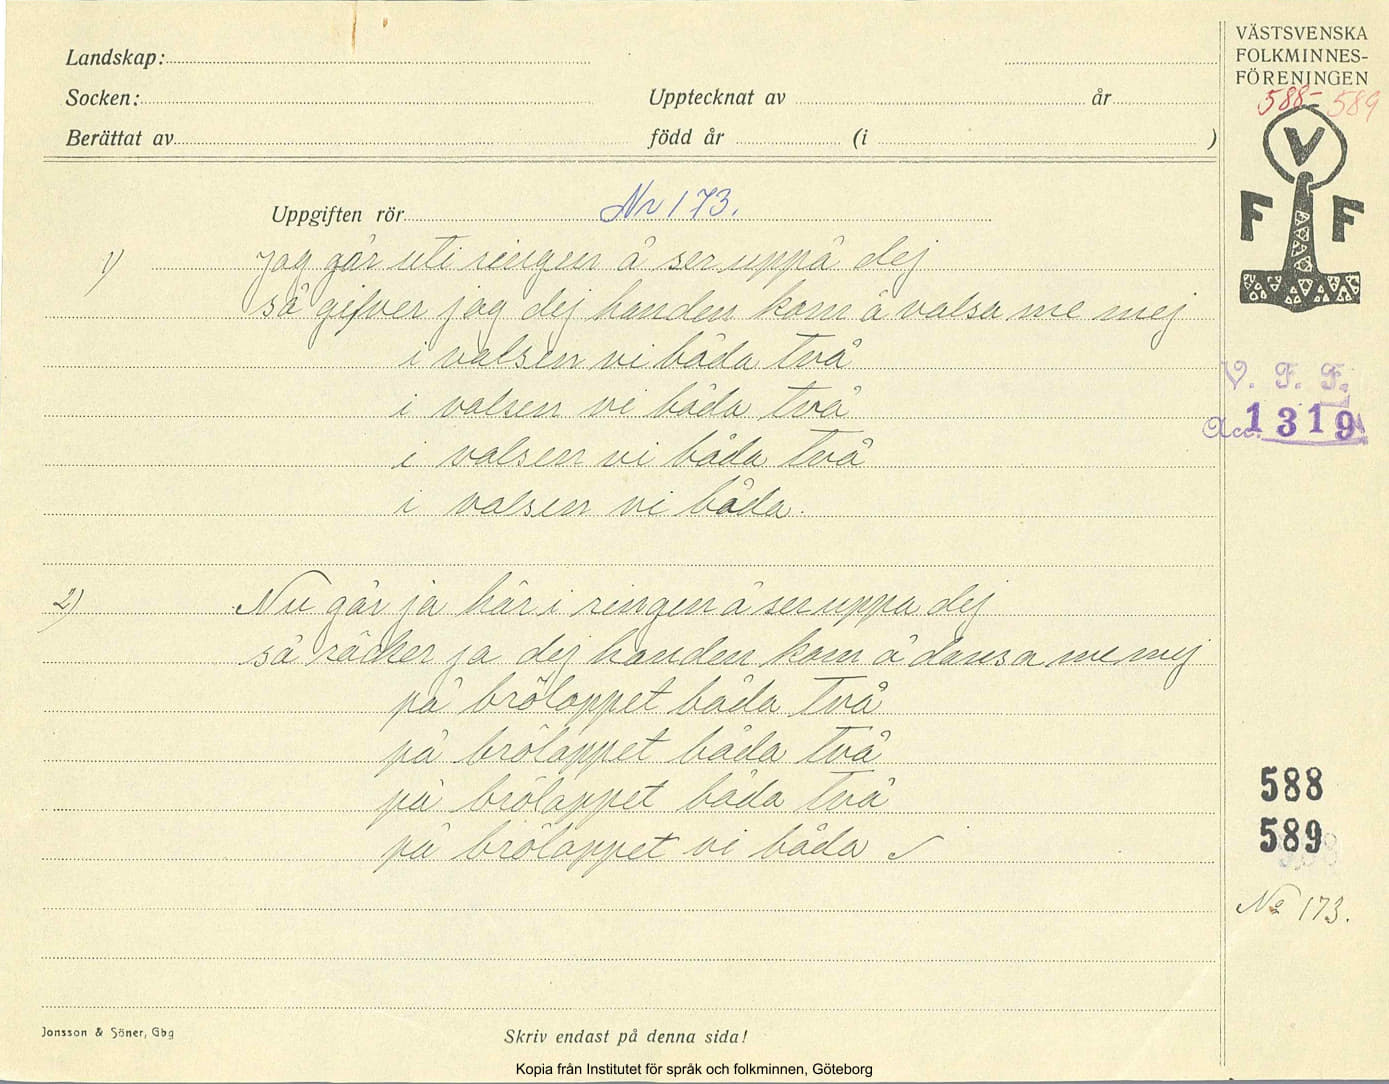 Landskap:
Socken:
Upptecknat av
år
Berättat av
född år
(i
)
VÄSTSVENSKA
FOLKMINNES-
FÖRENINGEN
588-589
V
F F
Uppgiften rör
Nr 173.
1) Jag går uti ringen å ser uppå dej
så gifver jag dej handen kom å valsa me mej
i valsen vi båda två
i valsen vi båda två
i valsen vi båda två
i valsen vi båda.
2) Nu går ja här i ringen å ser uppa dej
så räcker ja dej handen kom å dansa me mej
på bröloppet båda två
på brölappet båda två
på brölappet båda två
på brölappet vi båda
V. F. F.
Acc. 1319
588
589
No 173.
Jonsson & Söner, Gbg
Skriv endast på denna sida!
Kopia från Institutet för språk och folkminnen, Göteborg